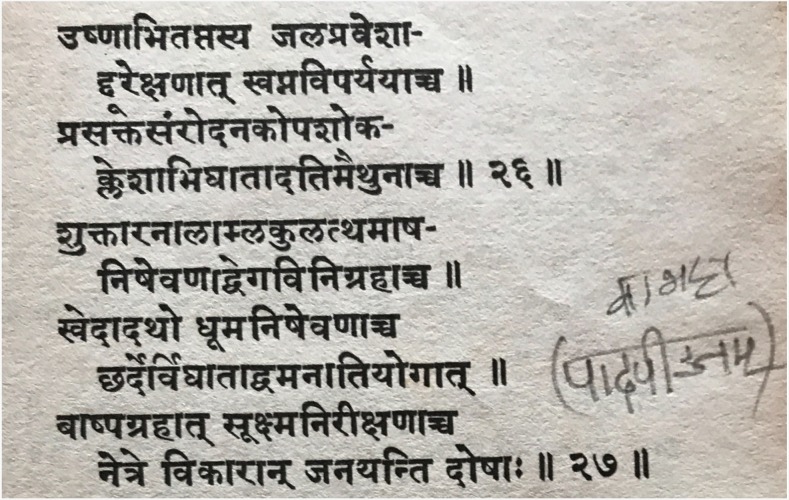 उष्णाभितप्तस्य जलप्रवेशा-
द्दूरेक्षणात् स्वप्नविपर्ययाच्च ॥
प्रसक्तसंरोदनकोपशोक-
क्लेशाभिघातादतिमैथुनाच्च ॥ २६ ॥
शुक्तारनालाम्लकुलत्थमाष-
निषेवणाद्वेगविनिग्रहाच्च ॥
स्वेदादथो धूमनिषेवणाच्च
छर्देर्विघाताद्वमनातियोगात् ॥
बाष्पग्रहात् सूक्ष्मनिरीक्षणाच्च
नेत्रे विकारान् जनयन्ति दोषाः ॥ २७ ॥
वाग्भट